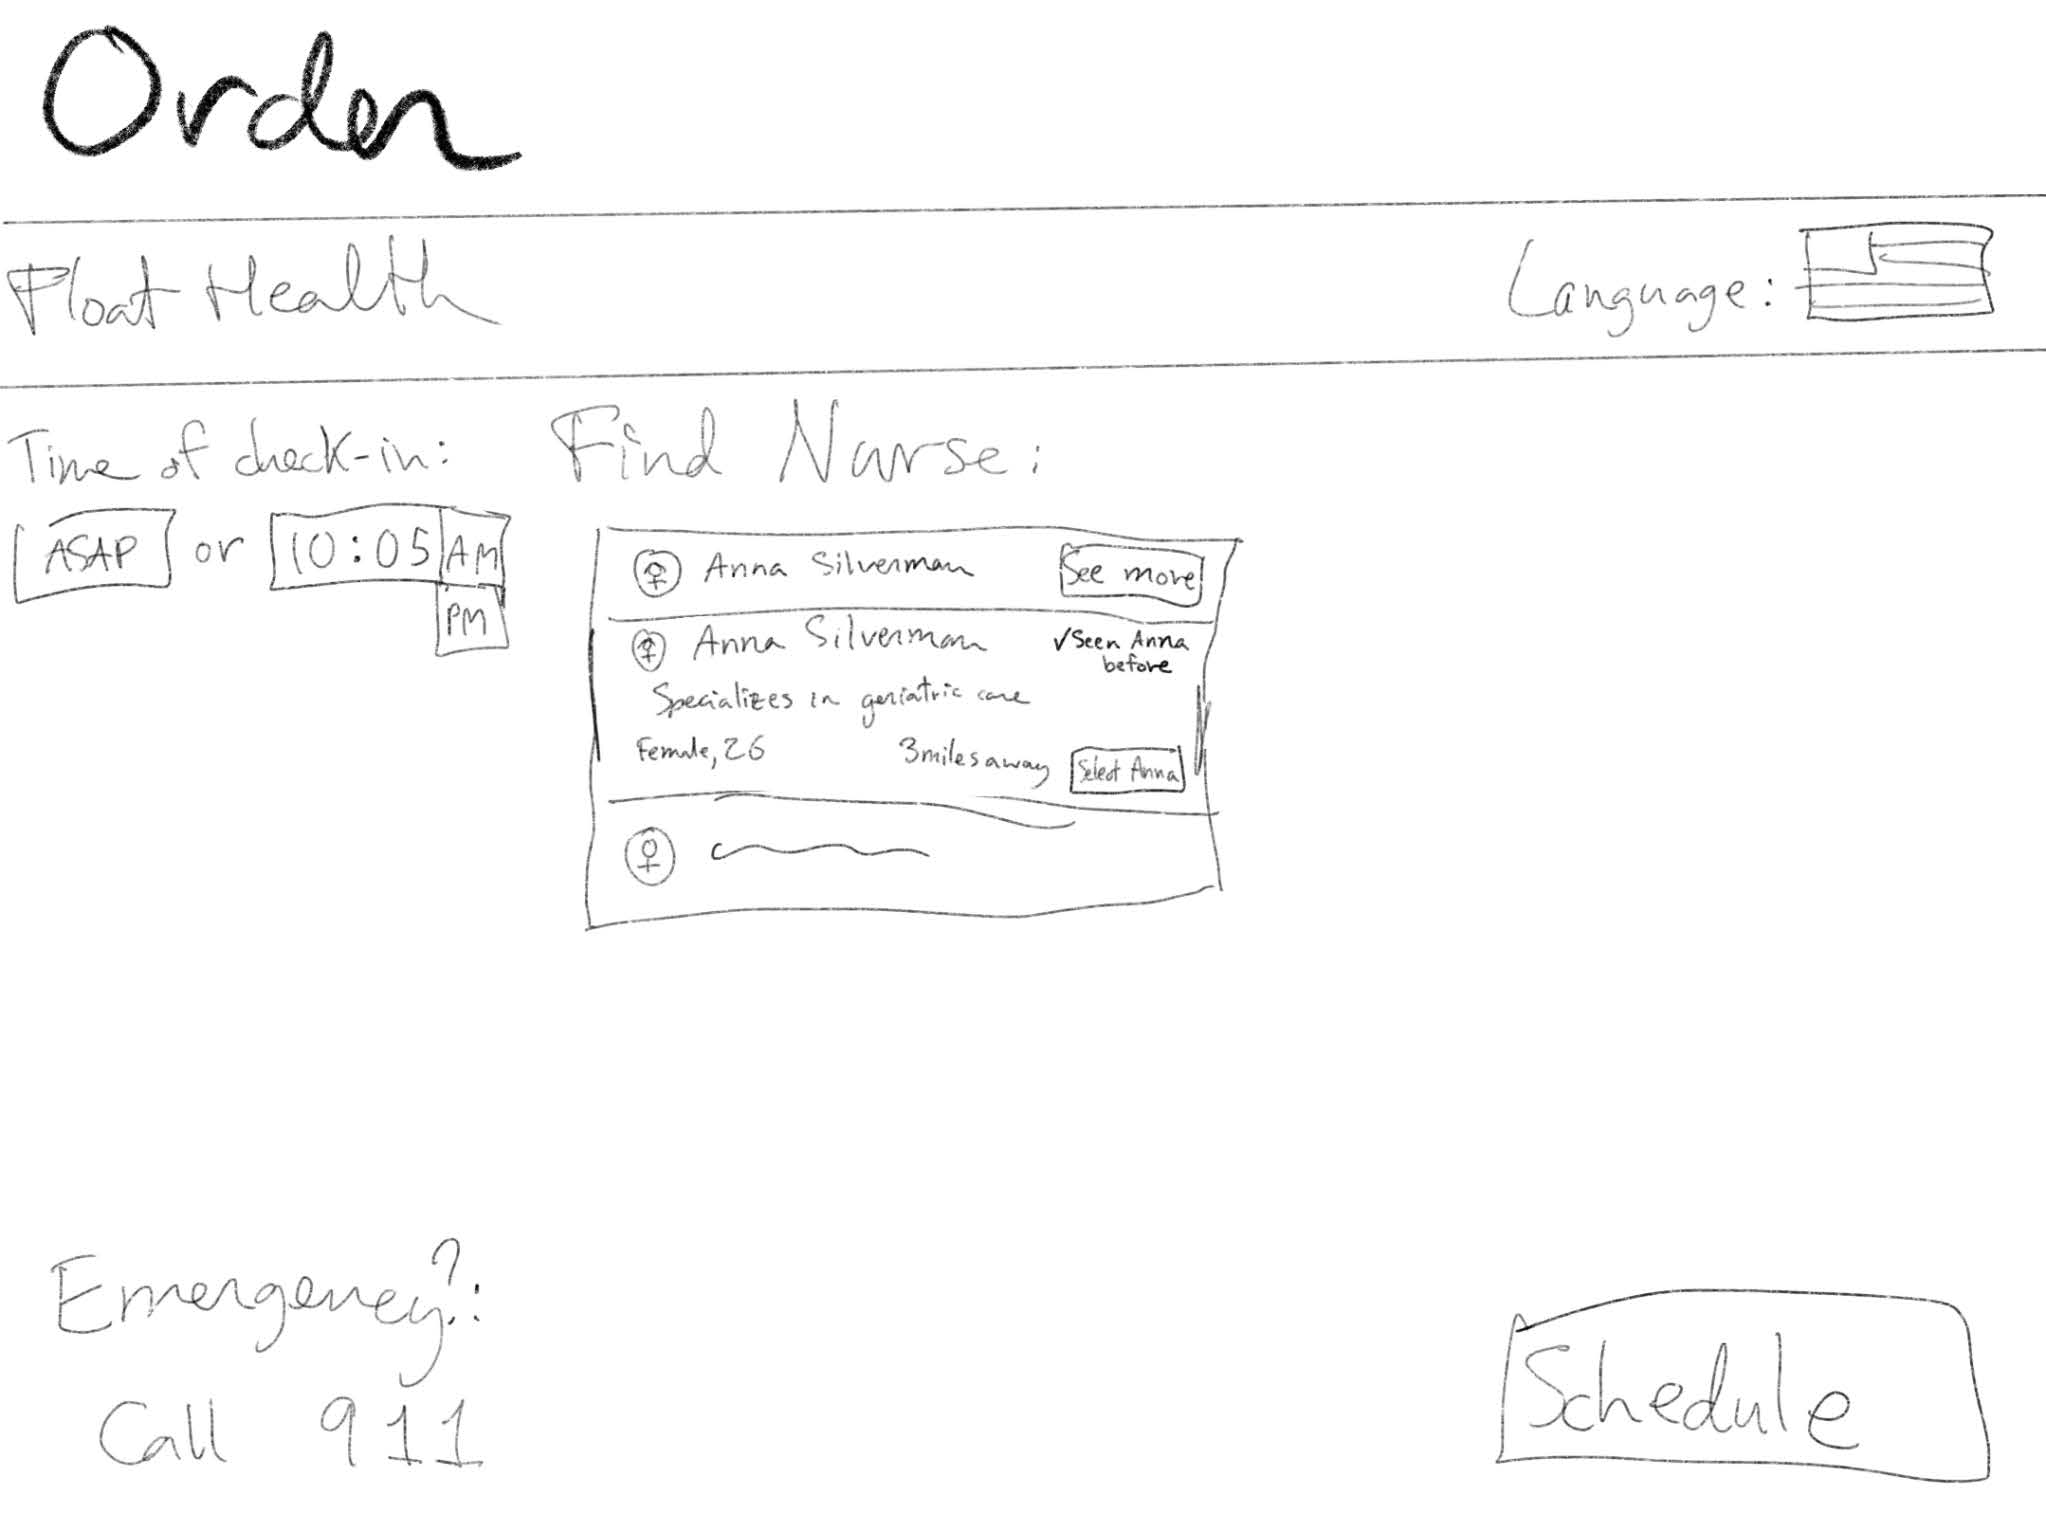 Order
Float Health
Language:
Time of check-in:
ASAP or 10:05 AM
PM
Find Nurse:
Anna Silverman
See more
Anna Silverman
✓Seen Anna
before
Specializes in geriatric care
Female, 26
3 miles away
Select Anna
Emergency?:
Call 911
Schedule